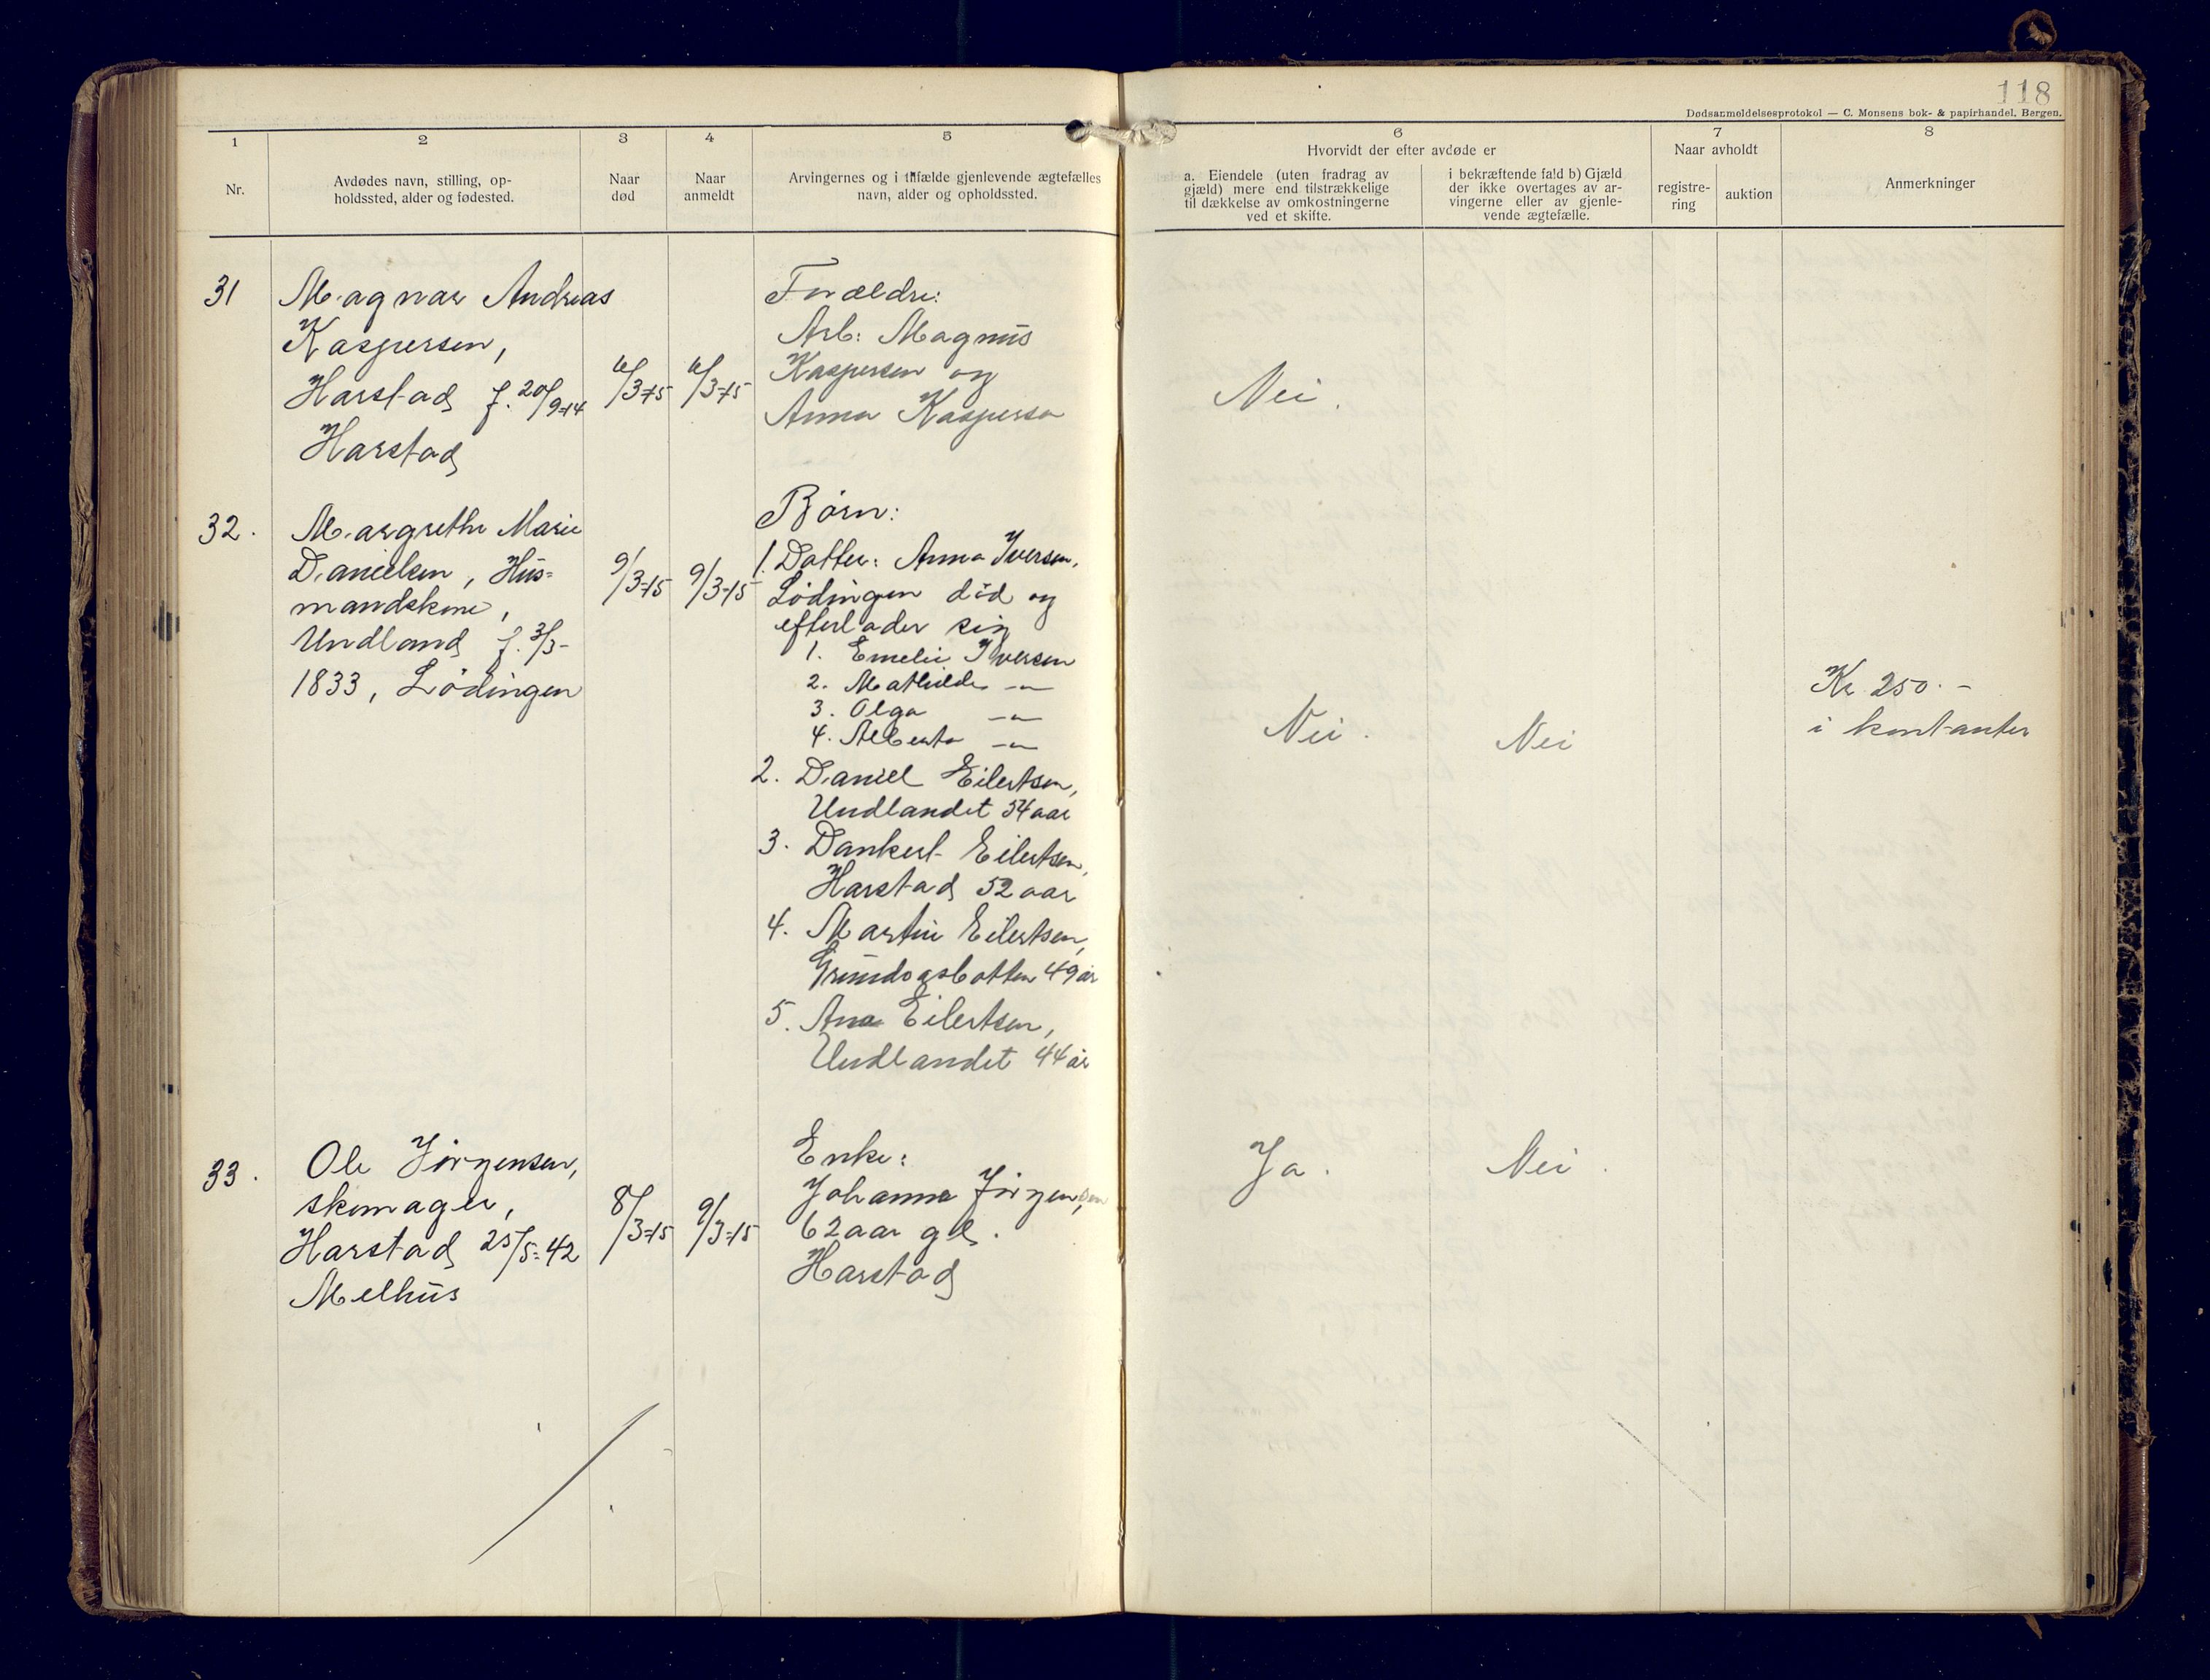 118
Dødsanmeldelsesprotokol — C. Monsens bok- & papirhandel. Bergen.
1
Nr.
2
Avdødes navn, stilling, op-
holdssted, alder og fødested.
3
Naar
død
4
Naar
anmeldt
5
Arvingernes og i tilfælde gjenlevende ægtefælles
navn, alder og opholdssted.
6
Hvorvidt der efter avdøde er
a. Eiendele (uten fradrag av
gjæld) mere end tilstrækkelige
til dækkelse av omkostningerne
ved et skifte.
i bekræftende fald b) Gjæld
der ikke overtages av ar-
vingerne eller av gjenle-
vende ægtefælle.
7
Naar avholdt
registre-
ring
auktion
8
Anmerkninger
31
Magnar Andreas
Kaspersen,
Harstad f. 20/9-14
Harstad
6/3-15
6/3-15
Forældre:
Arb: Magnus
Kaspersen og
Anna Kaspersen
Nei.
32.
Margrethe Marie
Danielsen, Hus-
mandskone,
Undland f. 3/3-
1833, Lødingen
9/3-15
9/3-15
Børn:
1. Datter: Anna Iversen,
Lødingen død og
efterlader sig
1. Emelie Iversen
2. Mathilde —"—
3. Olga —"—
4. Alberta —"—
2. Daniel Eilertsen,
Undlandet 54 aar
3. Dankert Eilertsen,
Harstad 52 aar
4. Martin Eilertsen,
49 år
5. Ane Eilertsen,
Undlandet 44 år
Nei.
Nei
Kr. 250.-
i kontanter
33.
Ole Jørgensen,
skomager,
Harstad 25/5-42
Melhus
8/3-15
9/3-15
Enke:
Johanna Jørgensen,
62 aar gl.
Harstad
Ja.
Nei.